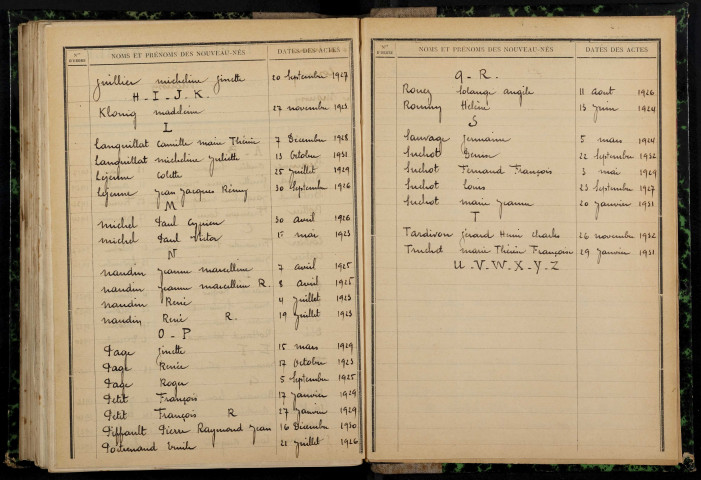 Nos D'ORDRE NOMS ET PRÉNOMS DES NOUVEAU-NÉS DATES DES ACTES
Juillier micheline ginette 20 Septembre 1927
H - I - J - K.
Klonig madeleine 27 novembre 1923
L
Languillat Camille marie Thérèse 7 Décembre 1928
Languillat micheline Juliette 13 Octobre 1931
Lejeune Colette 25 Juillet 1929
Lejeune Jean Jacques Rémy 30 Septembre 1926
M
michel Paul Cyprien 30 avril 1926
michel Paul Victor 1er mai 1923
N
naudin Jeanne marcelline 7 avril 1925
naudin Jeanne marcelline R. 8 avril 1925
naudin René 4 Juillet 1923
naudin René R. 19 Juillet 1923
O - P
Page Ginette 15 mars 1929
Page Renée 17 Octobre 1923
Page Roger 5 Septembre 1925
Petit François 17 Janvier 1929
Petit François R 27 Janvier 1929
Piffault Pierre Raymond Jean 16 Décembre 1930
Emile 21 Juillet 1926
Nos D'ORDRE NOMS ET PRÉNOMS DES NOUVEAU-NÉS DATES DES ACTES
Q - R.
Solange angèle 11 aout 1926
Hélène 13 Juin 1924
S
Sauvage Germaine 5 mars 1924
Suchot Denise 22 Septembre 1932
Suchot Fernand François 3 mai 1929
Suchot Louis 23 Septembre 1927
Suchot marie Jeanne 20 Janvier 1931
T
Tardivon Gérard Henri Charles 26 novembre 1932
Truchot marie Thérèse Françoise 29 Janvier 1931
U - V - W - X - Y - Z